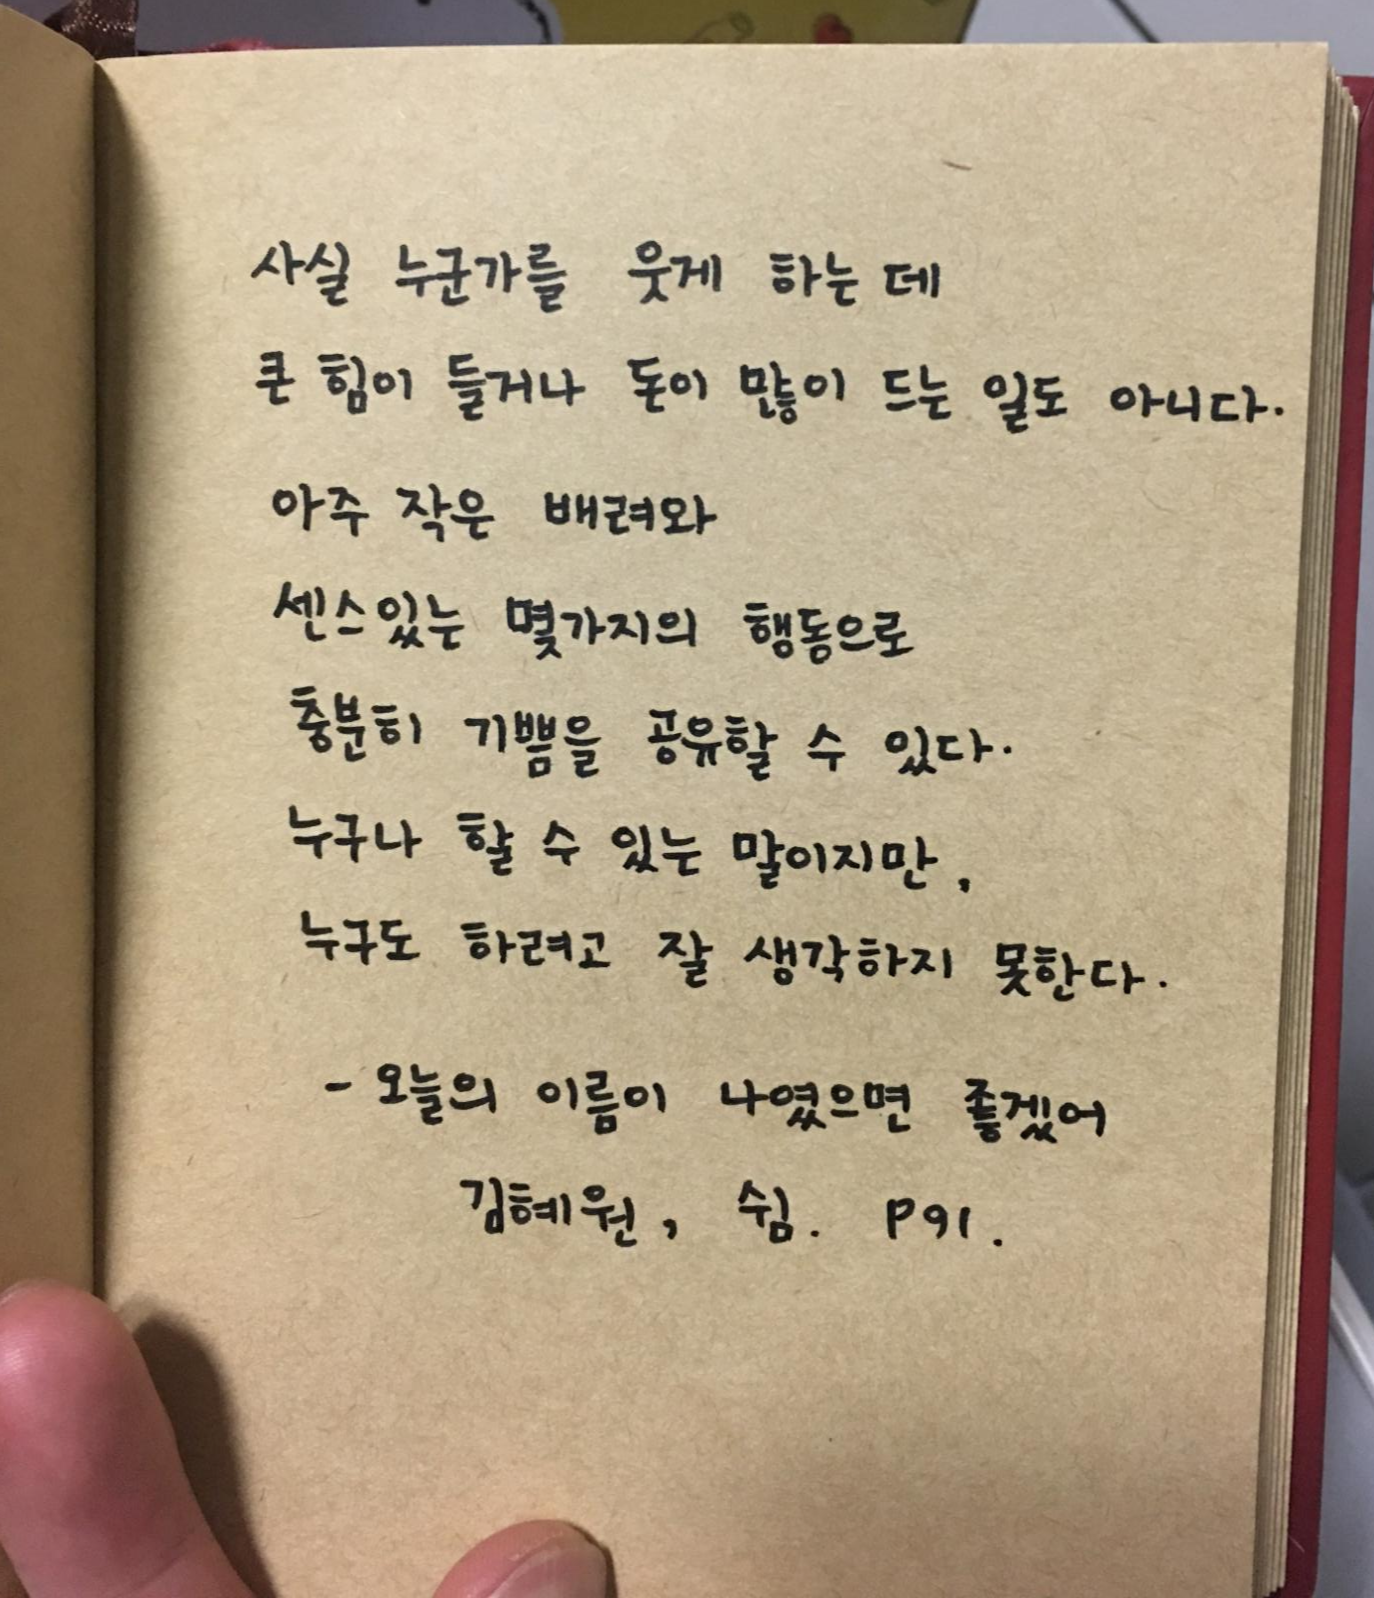 사실 누군가를 웃게 하는 데
큰 힘이 들거나 돈이 많이 드는 일도 아니다.
아주 작은 배려와
센스있는 몇가지의 행동으로
충분히 기쁨을 공유할 수 있다.
누구나 할 수 있는 말이지만,
누구도 하려고 잘 생각하지 못한다.
- 오늘의 이름이 나였으면 좋겠어
김혜원, 쉼. P91.